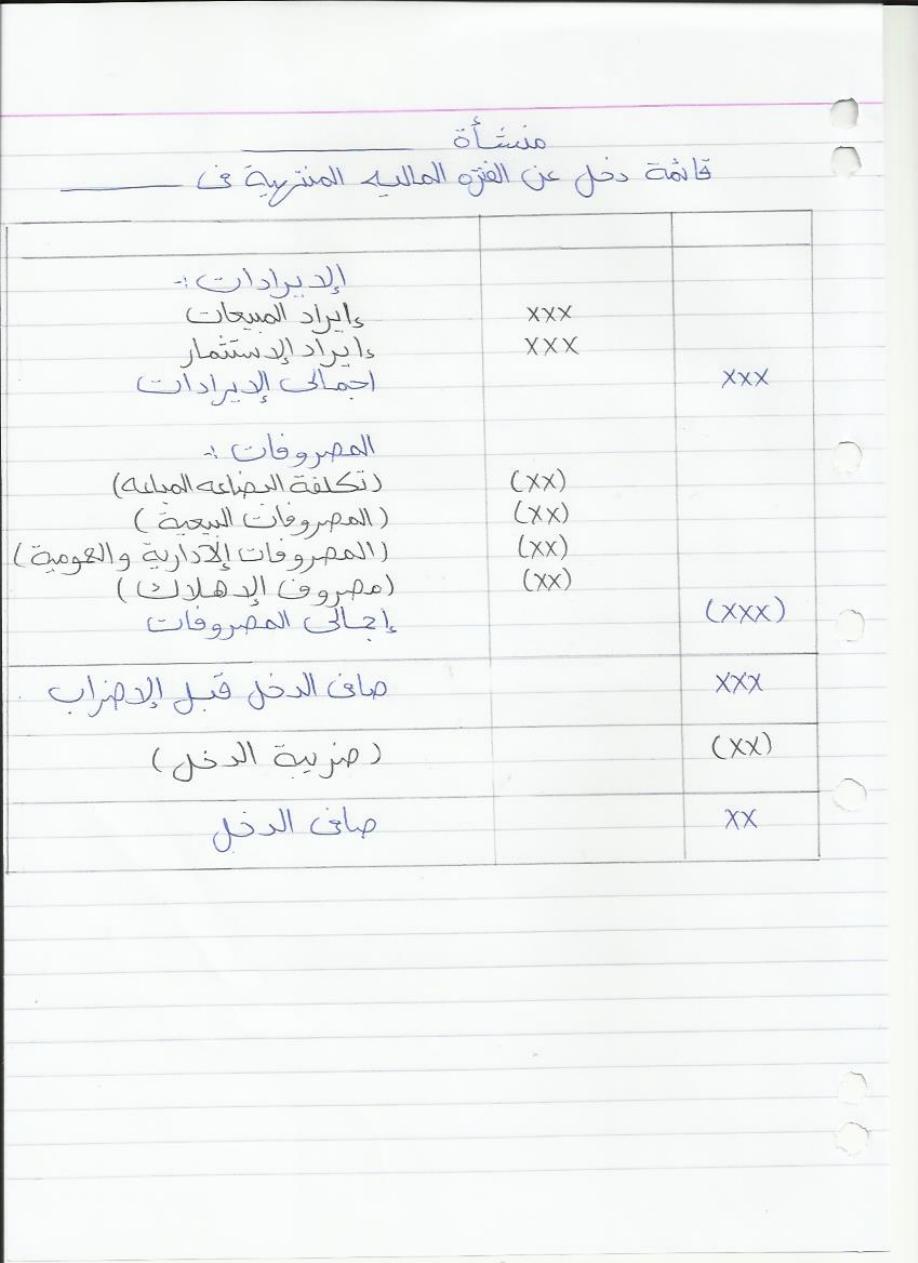 منشأة ________
قائمة دخل عن الفتره الماليه المنتهية فى ________
الايرادات :-
xxx إيراد المبيعات
xxx إيراد الاستثمار
xxx اجمالى الايرادات
المصروفات :-
(xx) (تكلفة البضاعه المباعه)
(xx) (المصروفات البيعية)
(xx) (المصروفات الادارية والعمومية)
(xx) (مصروف الاهلاك)
(xxx) إجمالى المصروفات
xxx صافى الدخل قبل
(xx) (ضريبة الدخل)
xx صافى الدخل